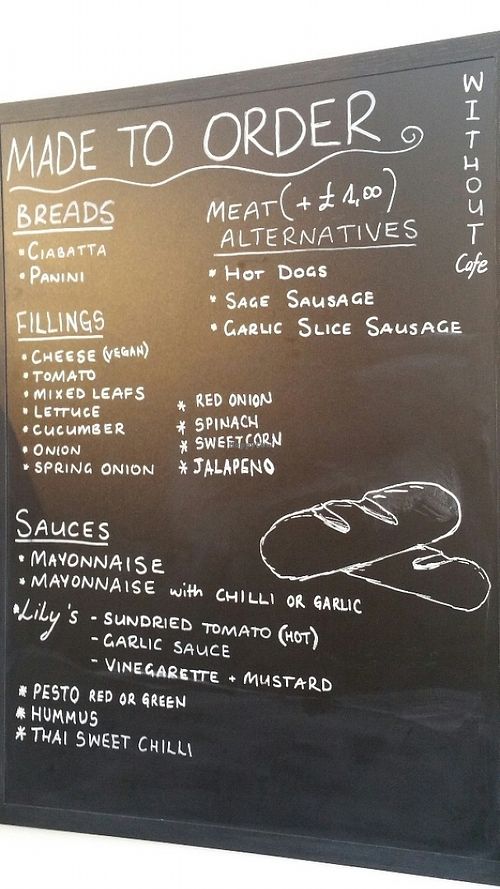 MADE TO ORDER
WITHOUT
Cafe
BREADS
• CIABATTA
• PANINI
MEAT (+ £1,00)
ALTERNATIVES
* HOT DOGS
* SAGE SAUSAGE
• GARLIC SLICE SAUSAGE
FILLINGS
• CHEESE (VEGAN)
• TOMATO
• MIXED LEAFS
• LETTUCE
• CUCUMBER
• ONION
• SPRING ONION
* RED ONION
* SPINACH
* SWEETCORN
* JALAPENO
SAUCES
• MAYONNAISE
• MAYONNAISE with CHILLI OR GARLIC
• Lily's - SUNDRIED TOMATO (HOT)
- GARLIC SAUCE
- VINEGARETTE + MUSTARD
* PESTO RED OR GREEN
* HUMMUS
* THAI SWEET CHILLI